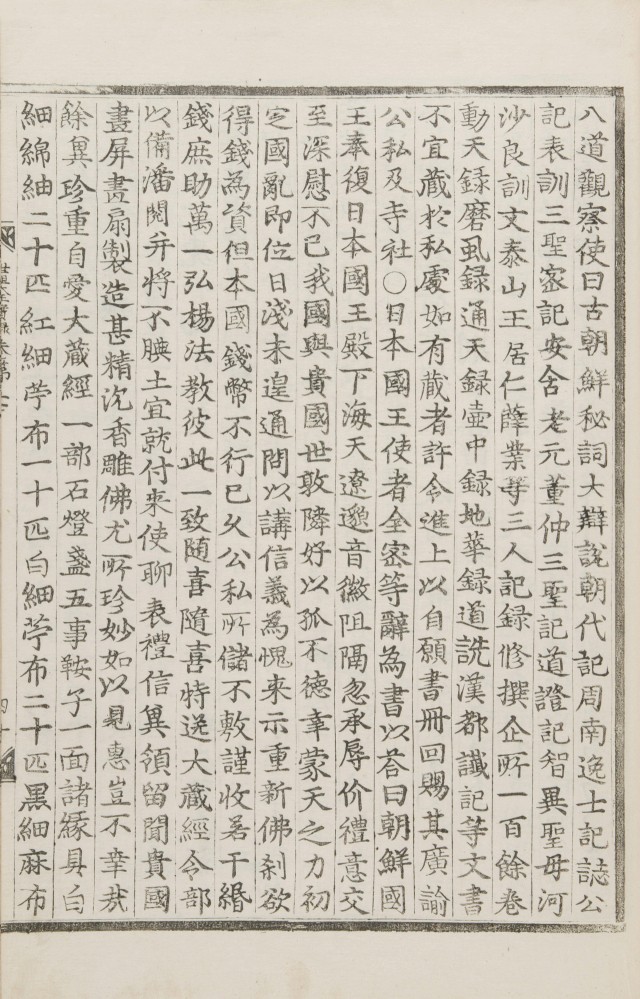 八道觀察使曰古朝鮮秘詞大辯說朝代記周南逸士記誌公
記表訓三聖密記安舍老元董仲三聖記道證記智異聖母河
沙良訓文泰山王居仁薛業等三人記録修撰企所一百餘卷
動天録磨虱録通天録壺中録地華録道詵漢都讖記等文書
不宜蔵於私處如有蔵者許令進上以自願書冊回賜其廣諭
公私及寺社○日本國王使者全密等辭為書以荅曰朝鮮國
王奉復日本國王殿下海天遼邈音徽阻隔忽承辱价禮意交
至深慰不已我國與貴國世敦隣好以孤不德幸蒙天之力初
定國亂即位日淺未遑通問以講信義為愧来示重新佛刹欲
得錢為資但本國錢幣不行已久公私所儲不敷謹收若干緡
錢庶助萬一弘揚法教彼此一致随喜隨喜特送大蔵經令部
以備潘閱并將不腆土宜就付来使聊表禮信兾領留聞貴國
畫屏畫扇製造甚精沉香雕佛尤所珍妙如以見惠豈不幸㦲
餘兾珍重自愛大蔵經一部石燈盞五事鞍子一面諸縁具白
細綿紬二十匹紅細苧布一十匹白細苧布二十匹黒細麻布